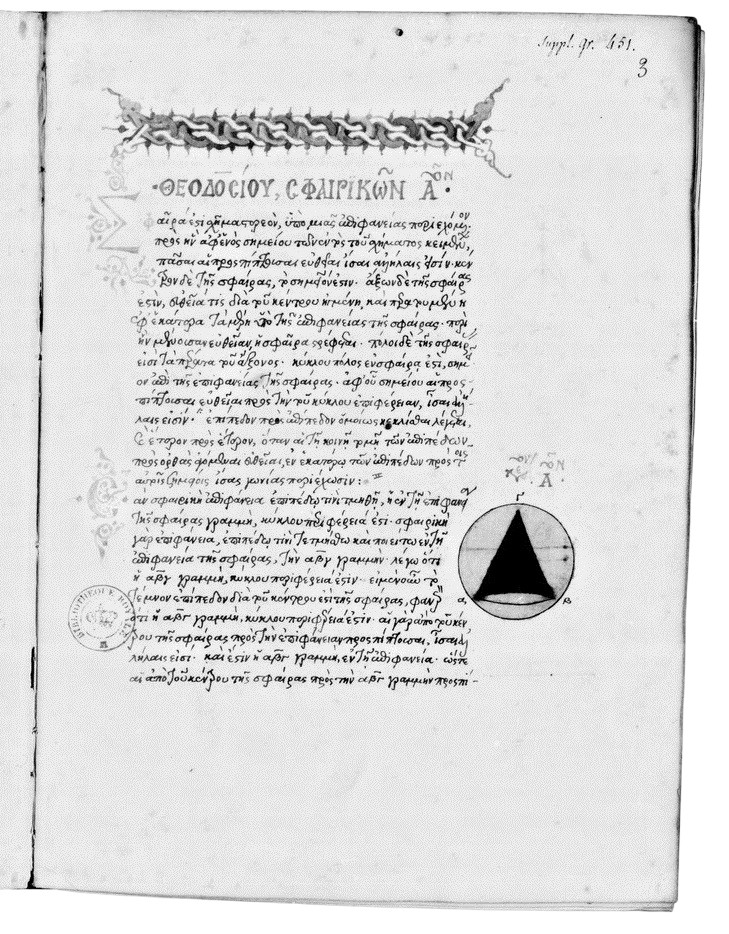 Suppl. gr. 451.
3
ΘΕΟΔΟΣΙΟΥ, ΣΦΑΙΡΙΚΩΝ Α̅ΟΝ
αῖρά ἐστι σχῆμα στερεὸν, ὑπὸ μιᾶς ἐπιφανείας περιεχόμενον
πρὸς ἣν ἀφ' ἑνὸς σημείου τῶν ἐντὸς τοῦ σχήματος κειμένων,
πᾶσαι αἱ προσπίπτουσαι εὐθεῖαι ἴσαι ἀλλήλαις εἰσίν. κέν
τρον δὲ τῆς σφαίρας, τὸ σημεῖόν ἐστιν. ἄξων δὲ τῆς σφαίρας
ἐστὶν, εὐθεῖά τις διὰ τοῦ κέντρου ἠγμένη, καὶ περατουμένη
ἐφ' ἑκάτερα τὰ μέρη ὑπὸ τῆς ἐπιφανείας τῆς σφαίρας. περὶ
ἣν μένουσαν εὐθεῖαν, ἡ σφαῖρα στρέφεται. πόλοι δὲ τῆς σφαίρας
εἰσὶ τὰ πέρατα τοῦ ἄξονος. κύκλου πόλος ἐν σφαίρα ἐστὶ, σημ
ον ἐπὶ τῆς ἐπιφανείας τῆς σφαίρας. ἀφ' οὗ σημείου αἱ προσ
πίπτουσαι εὐθεῖαι πρὸς τὴν τοῦ κύκλου ἐπιφέρειαν, ἴσαι ἀλλή
λαις εἰσίν. ἐπίπεδον πρὸς ἐπίπεδον ὁμοίως κεκλίσθαι λέγεται,
ἕτερον πρὸς ἕτερον, ὅταν αἱ τῇ κοινῇ τομῇ τῶν ἐπιπέδων
πρὸς ὀρθὰς ἀγόμεναι εὐθεῖαι, ἐν ἑκατέρω τῶν ἐπιπέδων πρὸς τοῖς
αὐτοῖς σημείοις ἴσας γωνίας περιέχωσιν:
αν σφαιρικὴ ἐπιφάνεια ἐπιπέδω τινὶ τμηθῇ, ἡ ἐν τῇ ἐπιφανεία
τῆς σφαίρας γραμμὴ, κύκλου περιφέρειά ἐστι. σφαιρικὴ
γὰρ ἐπιφάνεια, ἐπιπέδω τινὶ τετμήσθω καὶ ποιείτω ἐν τῇ
ἐπιφανεία τῆς σφαίρας, τὴν αβγ γραμμήν. λέγω ὅτι
ἡ αβγ γραμμὴ, κύκλου περιφέρειά ἐστιν. εἰ μὲν οὖν τὸ
τέμνον ἐπίπεδον διὰ τοῦ κέντρου ἐστὶ τῆς σφαίρας, φανερὸν
ὅτι ἡ αβγ γραμμὴ, κύκλου περιφέρειά ἐστιν. αἱ γὰρ ἀπὸ τοῦ κέν
τρου τῆς σφαίρας πρὸς τὴν ἐπιφάνειαν προσπίπτουσαι, ἴσαι ἀλ
λήλαις εἰσί. καὶ ἔστιν ἡ αβγ γραμμὴ, ἐν τῇ ἐπιφανεία. ὥστε
αἱ ἀπὸ τοῦ κέντρου τῆς σφαίρας πρὸς τὴν αβγ γραμμὴν προσπί-
Α̅ΟΝ
Γ
Α
Β
BIBLIOTHEQUE ROYALE